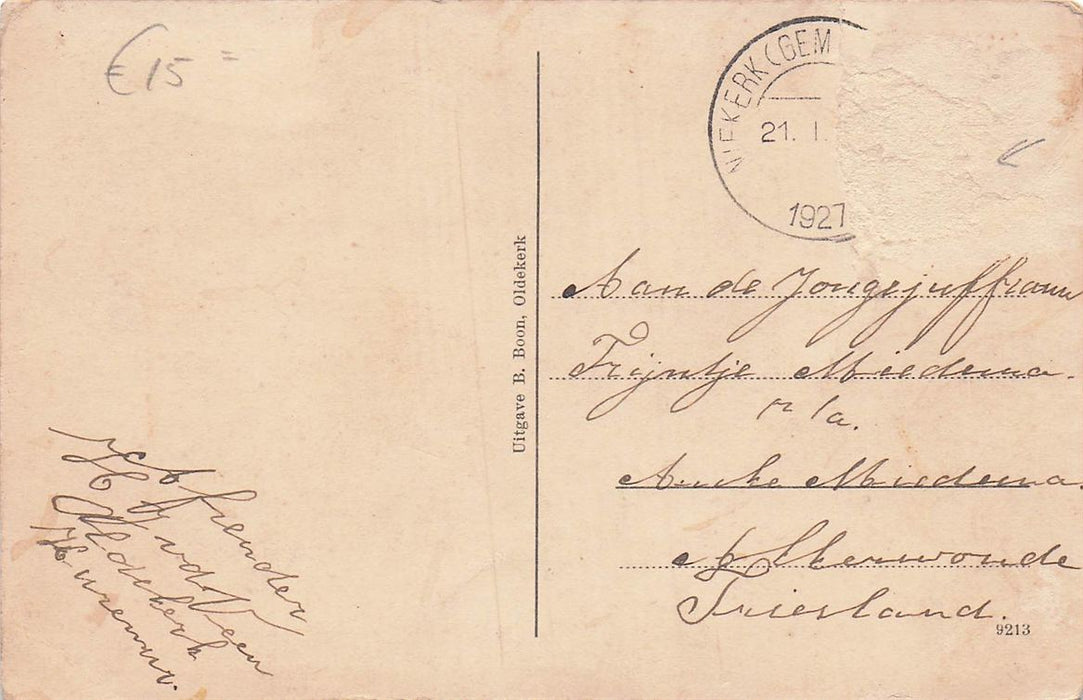 € 15 =
NIEKERK (GEM
21. I.
1927
Uitgave B. Boon, Oldekerk
Aan de Jongejuffrouw
Trijntje Miedema.
p/a.
Auke Miedema.
Akkerwoude
Friesland.
9213
Afzender
H v d Veen
Oldekerk